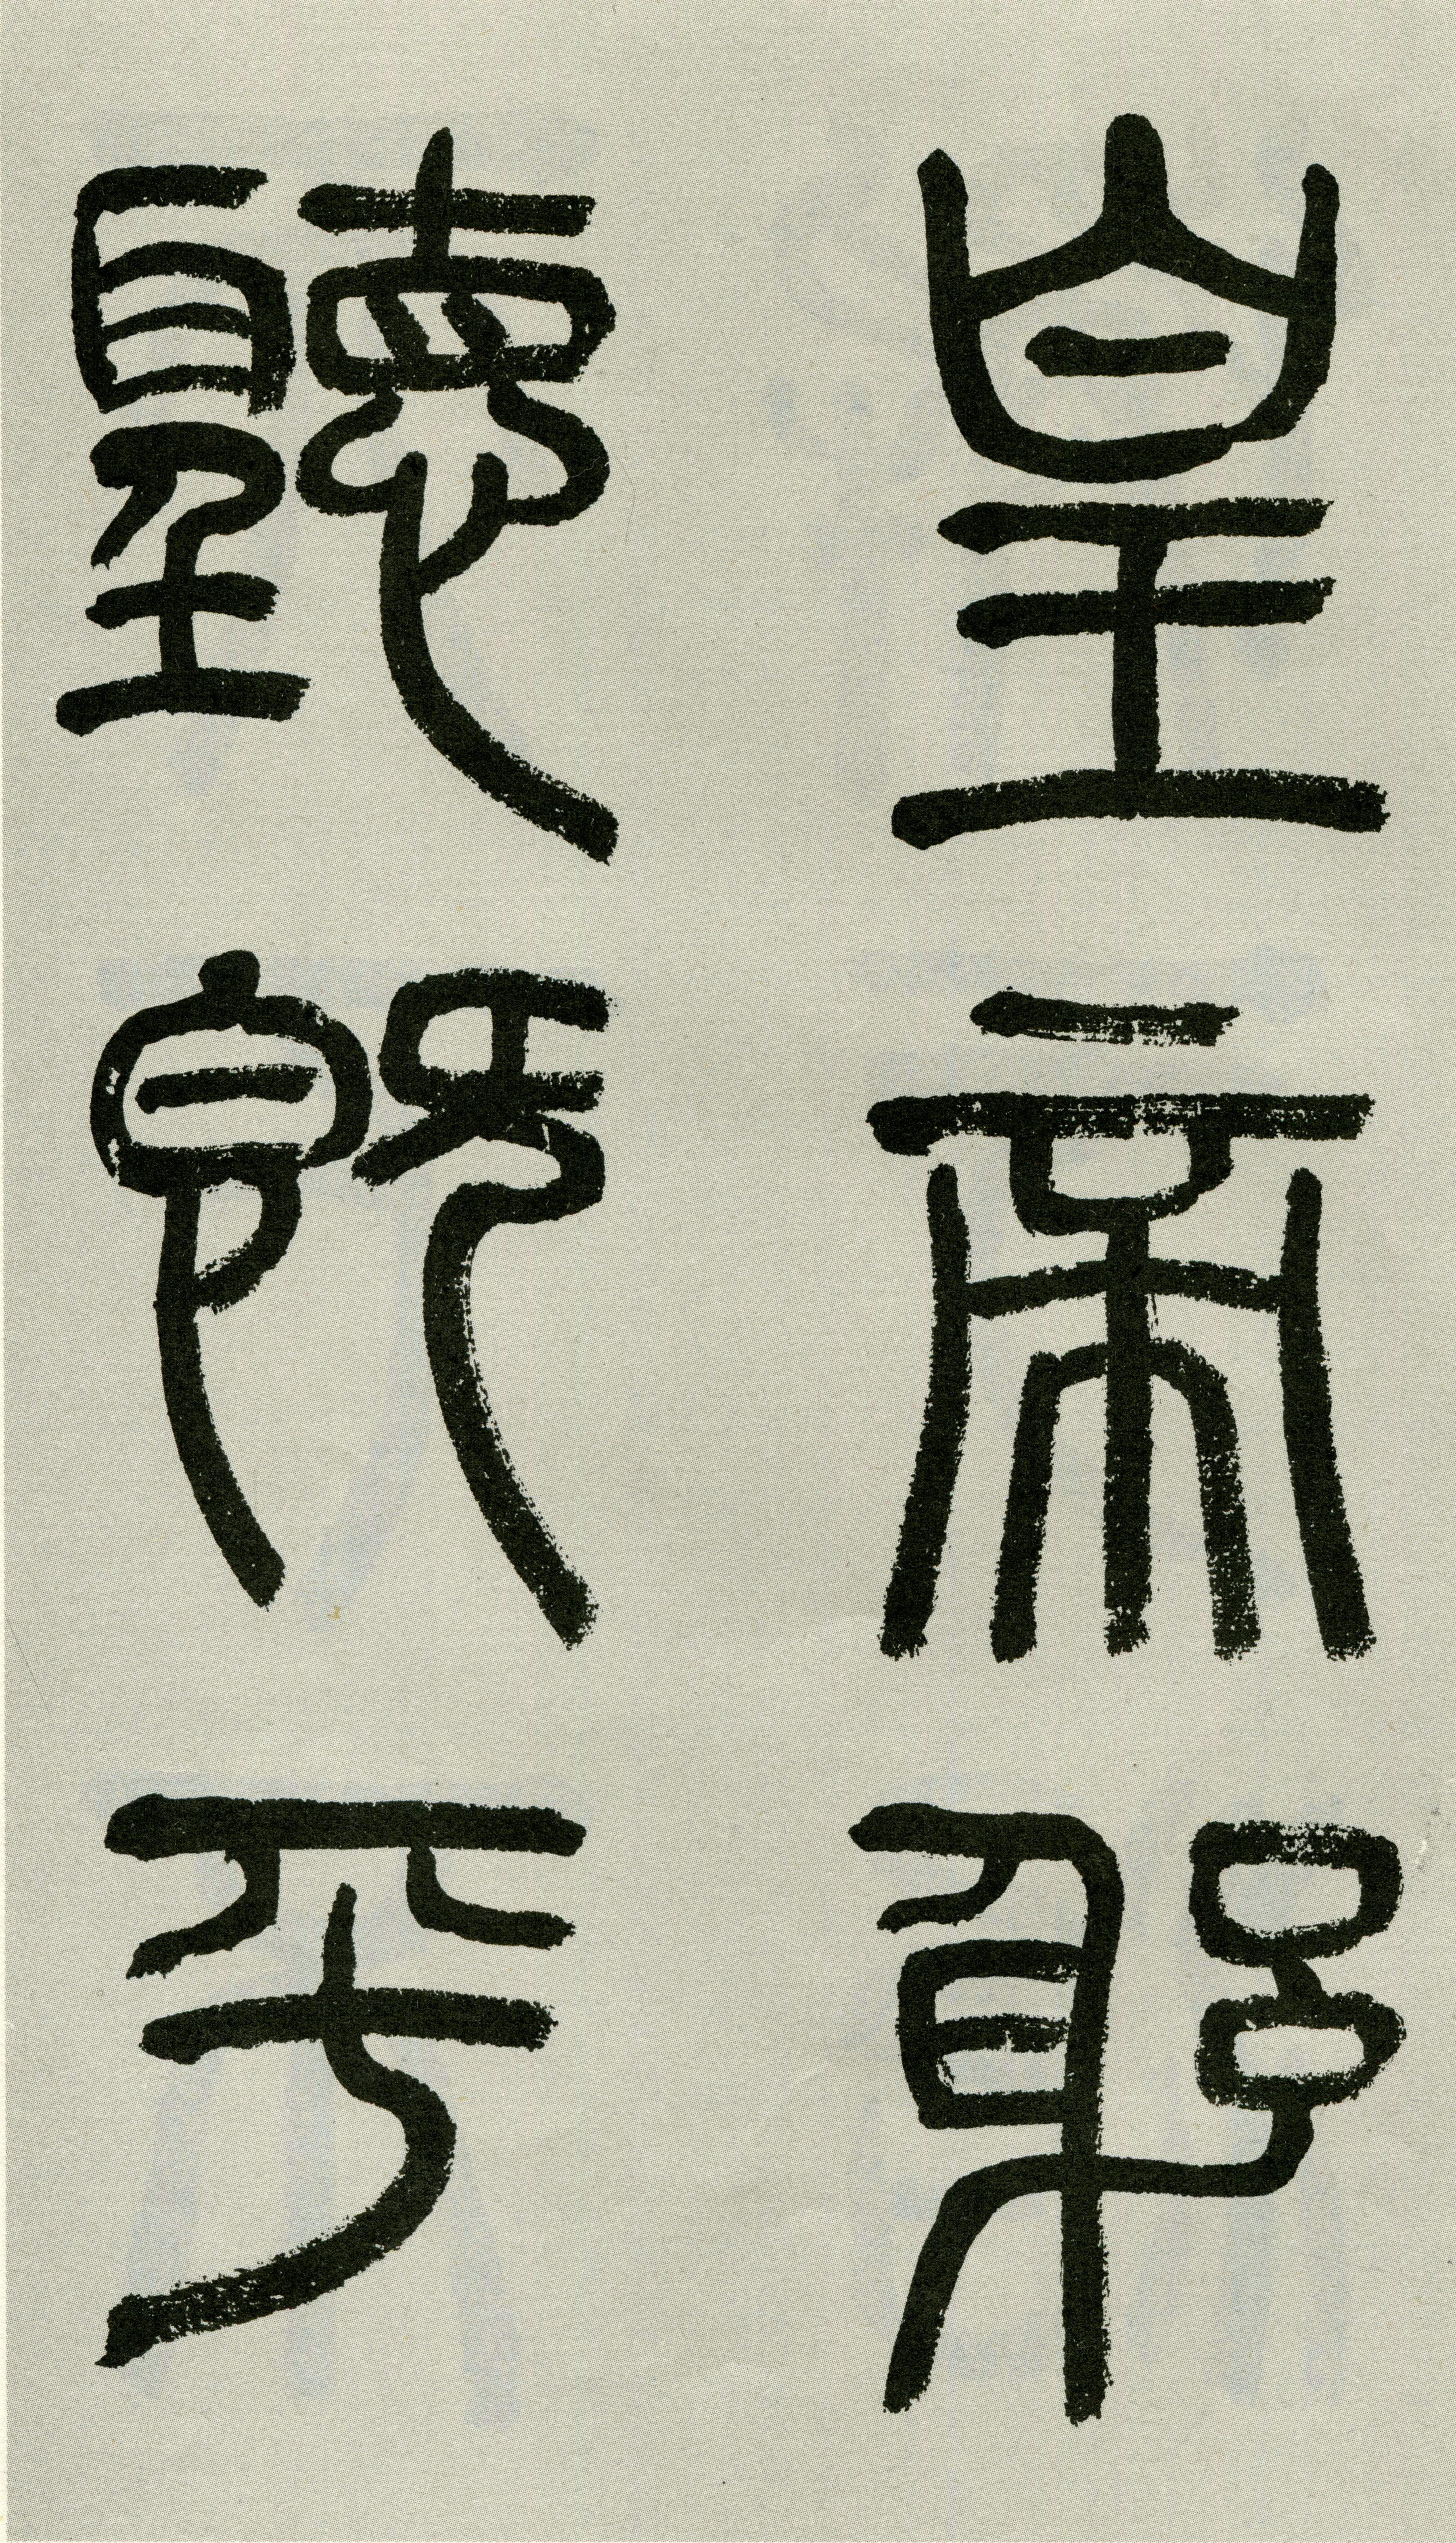 皇帝躳
聽既平